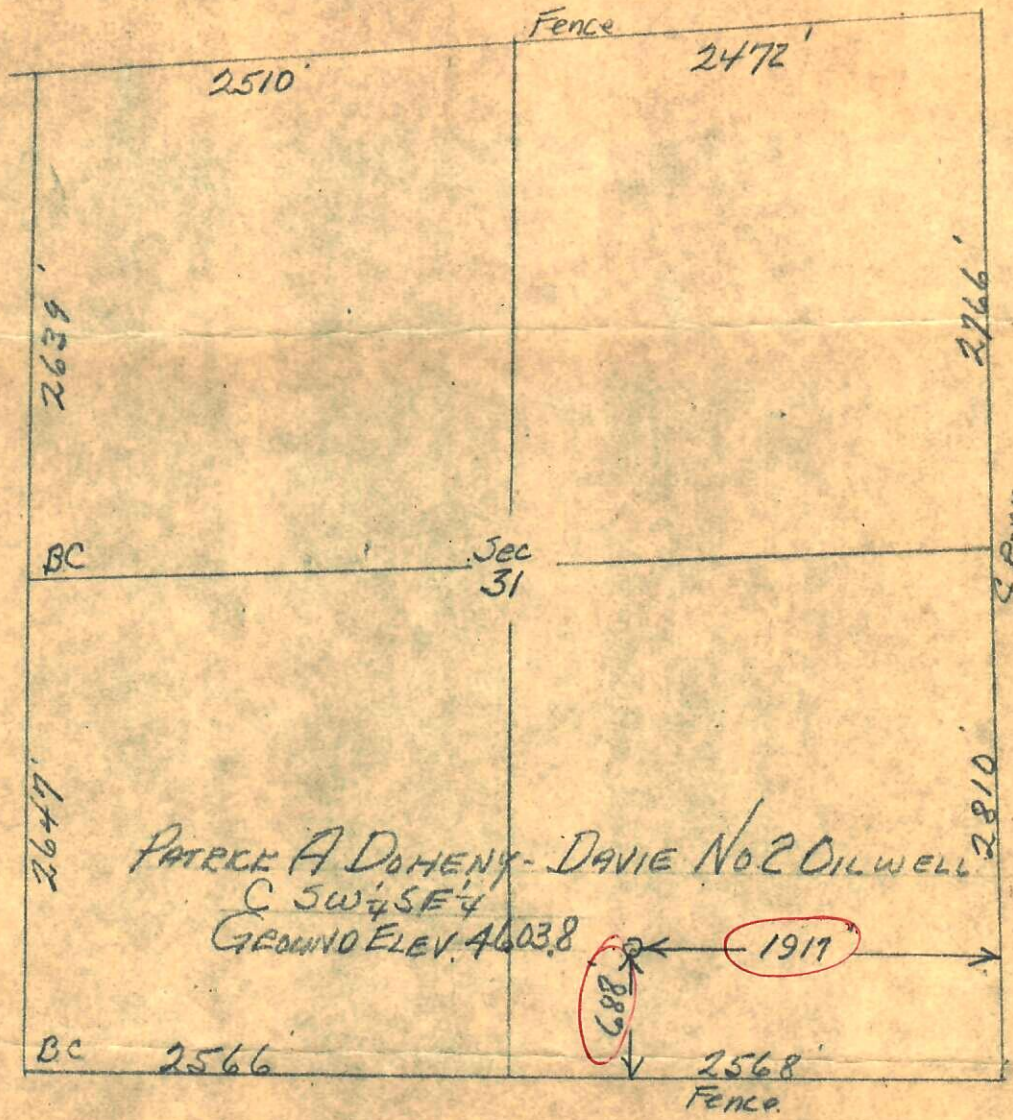 Fence
2510'
2472'
2639'
2766'
BC
Sec
31
2647'
2810'
PATRICK A DOHENY - DAVIE No 2 OILWELL
C SW 1/4 SE 1/4
GROUND ELEV. 4603.8
1917'
688'
BC
2566'
2568'
Fence.